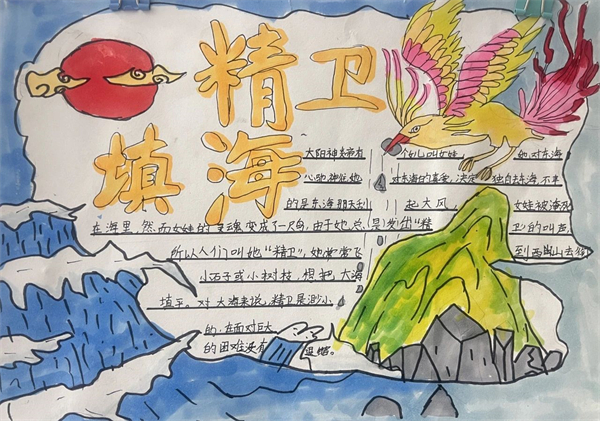 精卫
填海
太阳神炎帝有 个幼儿叫女娃 她对东海
心驰神往 她 对东海的喜爱,决定 独自去东海 不幸
的是东海那天刮 起大风, 女娃被淹死
在海里,然而女娃的灵魂变成了一只鸟,由于她总是发出"精 卫"的叫声
所以人们叫她"精卫",她常常飞 到西山去衔
小石子或小树枝,想把大海
填平。对大海来说,精卫是渺小
的,在面对巨大
的困难没有 退缩。